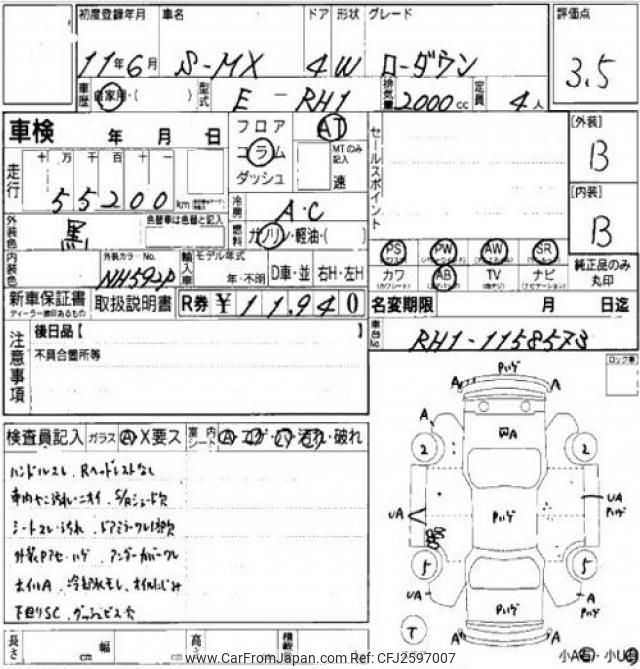 初度登録年月 車名 ドア 形状 グレード 評価点
11年6月 S-MX 4 W ローダウン 3.5
車歴 自家用・( ) 型式 E-RH1 排気量 2000cc 定員 4人
車検 年 月 日 フロア AT セールスポイント [外装]
走行 十 万 千 百 十 一 コラム MTのみ記入 B
55200 km ダッシュ 速 [内装]
外装色 黒 色替車は色替と記入 冷房 A・C B
燃料 ガソリン・軽油・( )
PS PW AW SR 純正品のみ丸印
カワ AB TV ナビ
内装色 外装カラーNo. NH592P 輸入車 モデル年式 年・不明 D車・並 右H・左H
新車保証書 ディーラー捺印あるもの 取扱説明書 R券 ¥ 11,940 名変期限 月 日迄
注意事項 後日品【 車台No. RH1-1158573
不具合箇所等 ロック車
検査員記入 ガラス A X要ス 室内シート A・コゲ・穴・汚れ・破れ
ハンドルスレ、Rヘッドレストなし
車内ヤニ汚れ・ニオイ、
シートスレ・汚れ、
外装Pアセ・ハゲ アンダーカバーワレ
ホイルA 冷却水モレ、オイルにじみ
下廻りSC、ダッシュビス穴
ハゲ
A A
A A
2 2
UA UA
Pハゲ Pハゲ
5 5
UA A
Pハゲ Pハゲ
T A A
長さ cm 幅 cm 高さ 積載 小A 小U
www.CarFromJapan.com Ref: CFJ2597007